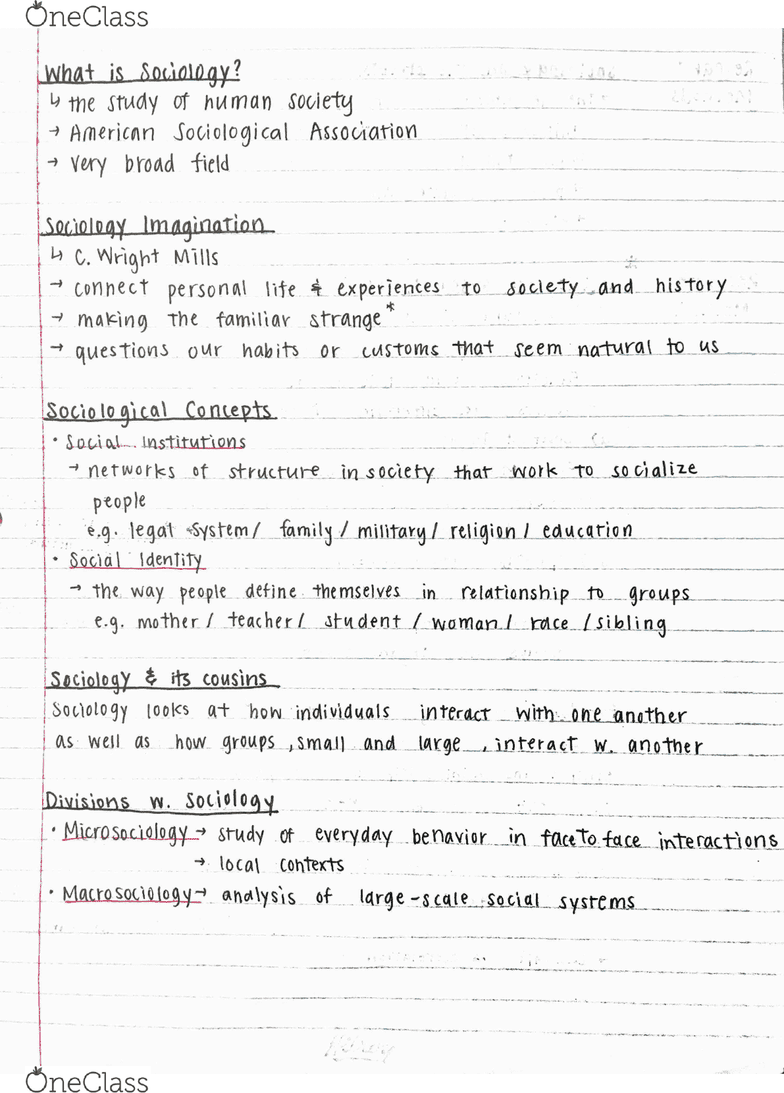 OneClass
What is Sociology?
↳ the study of human society
→ American Sociological Association
→ very broad field
Sociology Imagination
↳ C. Wright Mills
→ connect personal life & experiences to society and history
→ making the familiar strange*
→ questions our habits or customs that seem natural to us
Sociological Concepts
• Social Institutions
→ networks of structure in society that work to socialize
people
e.g. legal system / family / military / religion / education
• Social Identity
→ the way people define themselves in relationship to groups
e.g. mother / teacher / student / woman / race / sibling
Sociology & its cousins
Sociology looks at how individuals interact with one another
as well as how groups, small and large, interact w. another
Divisions w. Sociology
• Microsociology → study of everyday behavior in face to face interactions
→ local contexts
• Macrosociology → analysis of large-scale social systems
OneClass